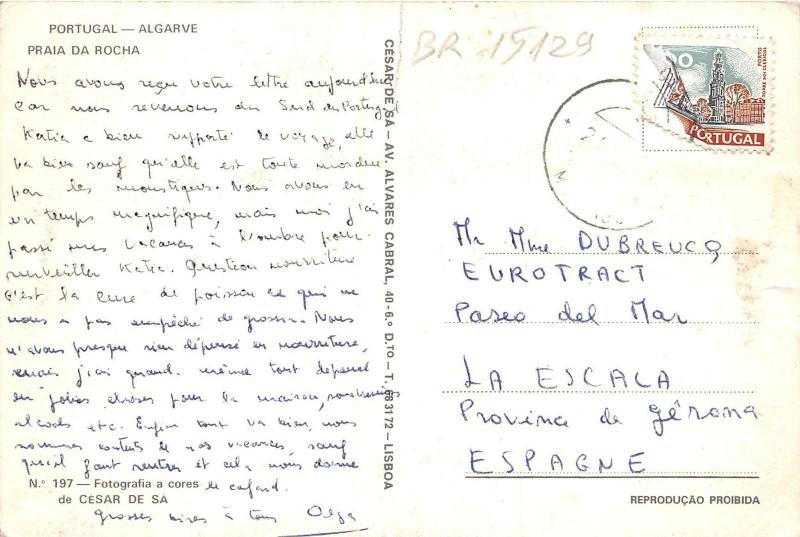 PORTUGAL — ALGARVE
PRAIA DA ROCHA
Nous avons reçu votre lettre aujourd'hui
car nous revenons du Sud du Portugal
Katia a bien supporté le voyage, elle
va bien sauf qu'elle est toute mordue
par les moustiques. Nous avons eu
un temps magnifique, mais moi j'ai
passé mes vacances à l'ombre pour
surveiller Katia. Question nourriture
c'est la cure de poisson ce qui ne
nous a pas empêché de grossir. Nous
n'avons presque rien dépensé en nourriture,
mais j'ai quand même tout dépensé
en jolies choses pour la maison, souvenirs
alcools etc. Enfin tout va bien, nous
sommes contents de nos vacances, sauf
qu'il faut rentrer et cela nous donne
le cafard.
N.º 197 — Fotografia a cores
de CÉSAR DE SÁ
grosses bises à tous Olga
CÉSAR DE SÁ — AV. ALVARES CABRAL, 40-6.º D.TO — T. 683172 — LISBOA
BR-15129
PORTO
TORRE DOS CLÉRIGOS
PORTUGAL
Mr Mme DUBREUCQ
EUROTRACT
Paseo del Mar
LA ESCALA
Province de gérona
ESPAGNE
REPRODUÇÃO PROIBIDA